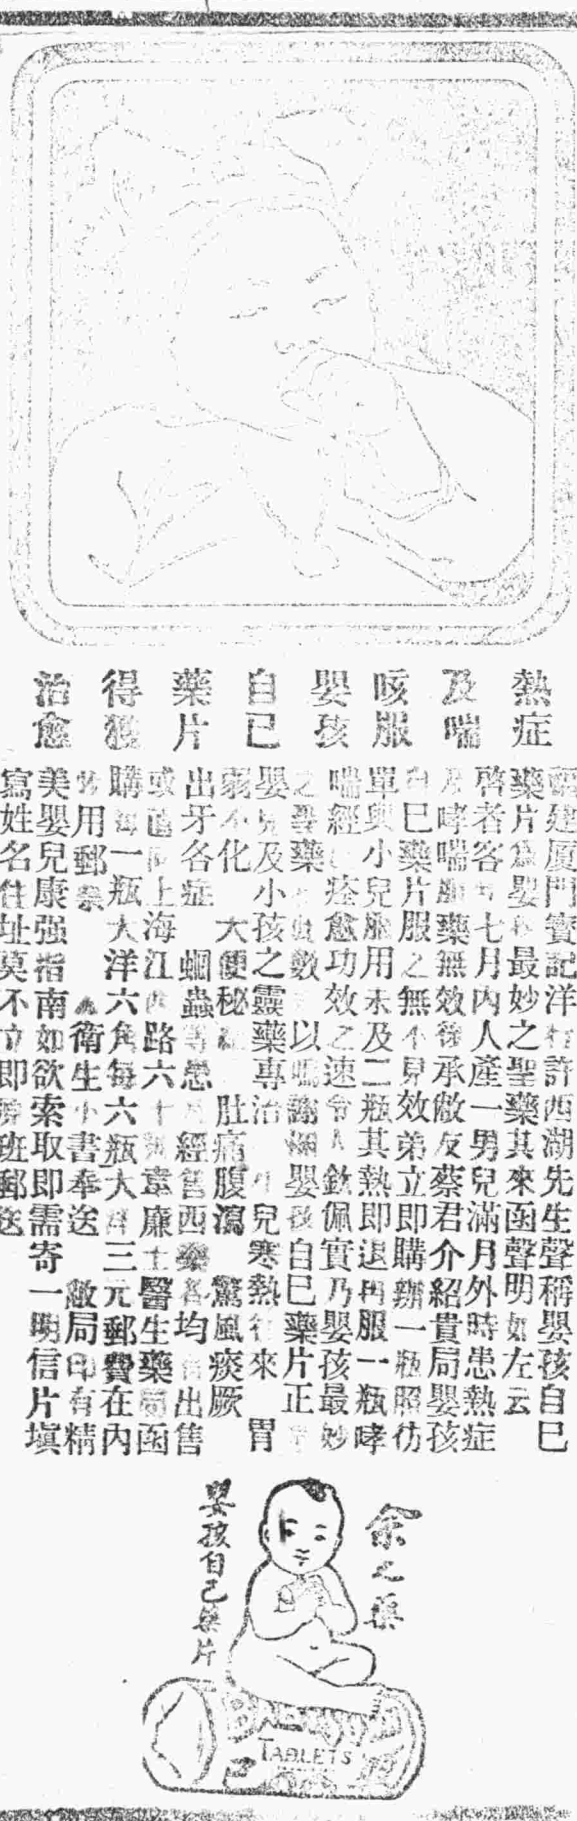 熱症
及喘
咳服
嬰孩
自己
藥片
得獲
治愈
福建厦門寶記洋行許西湖先生聲稱嬰孩自己
藥片為嬰孩最妙之聖藥其來函聲明如左云
啓者客年七月內人產一男兒滿月外時患熱症
及哮喘服藥無效後承敝友蔡君介紹貴局嬰孩
自己藥片服之無不見效弟立即購辦一瓶照仿
單與小兒服用未及二瓶其熱即退再服一瓶哮
喘經痊愈功效之速令人欽佩實乃嬰孩最妙
之藥數以謝嬰孩自己藥片正
嬰兒及小孩之靈藥專治 小兒寒熱往來 胃
弱不化 大便秘 肚痛腹瀉 驚風痰厥
出牙各症 蛔蟲等患 經售西藥者均有出售
或函向上海江西路六十號韋廉士醫生藥局函
購每一瓶大洋六角每六瓶大洋三元郵費在內
用郵票 衛生小書奉送 敝局印有精
美嬰兒康强指南如欲索取即需寄一明信片塡
寫姓名住址莫不立即郵送
余之藥
嬰孩自己藥片
TABLETS